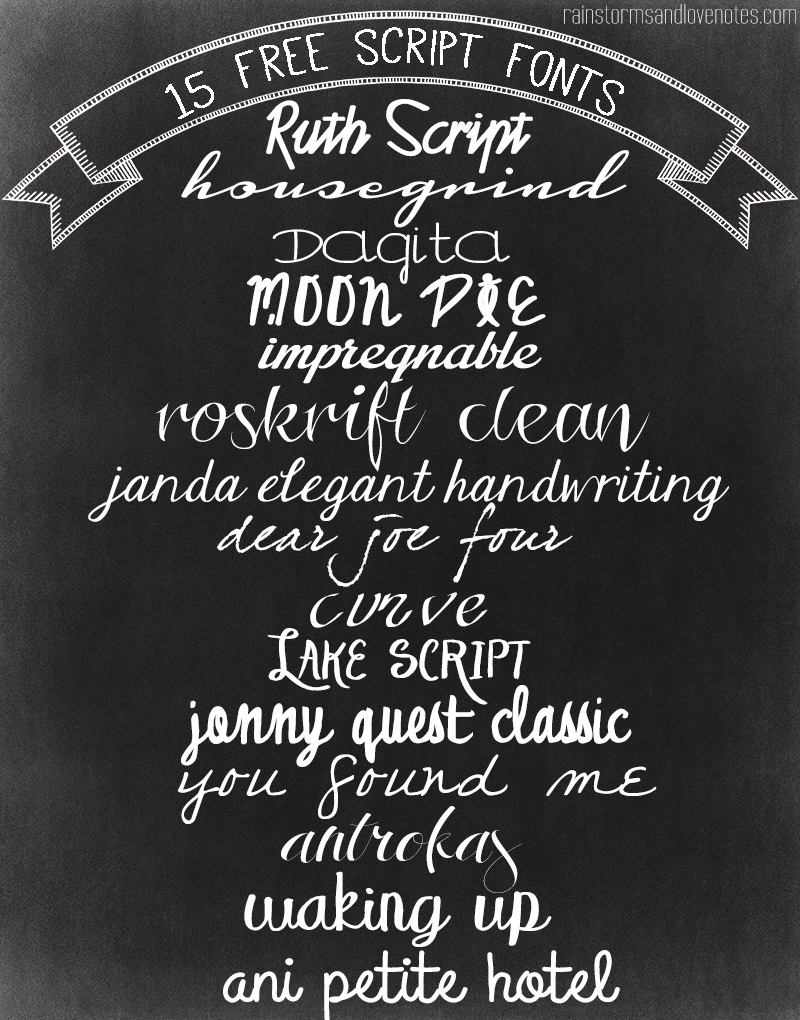 rainstormsandlovenotes.com
15 FREE SCRIPT FONTS
Ruth Script
housegrind
Dagita
MOON PIE
impregnable
roskrift clean
janda elegant handwriting
dear joe four
curve
LAKE SCRIPT
jonny quest classic
you found me
antrokas
waking up
ani petite hotel